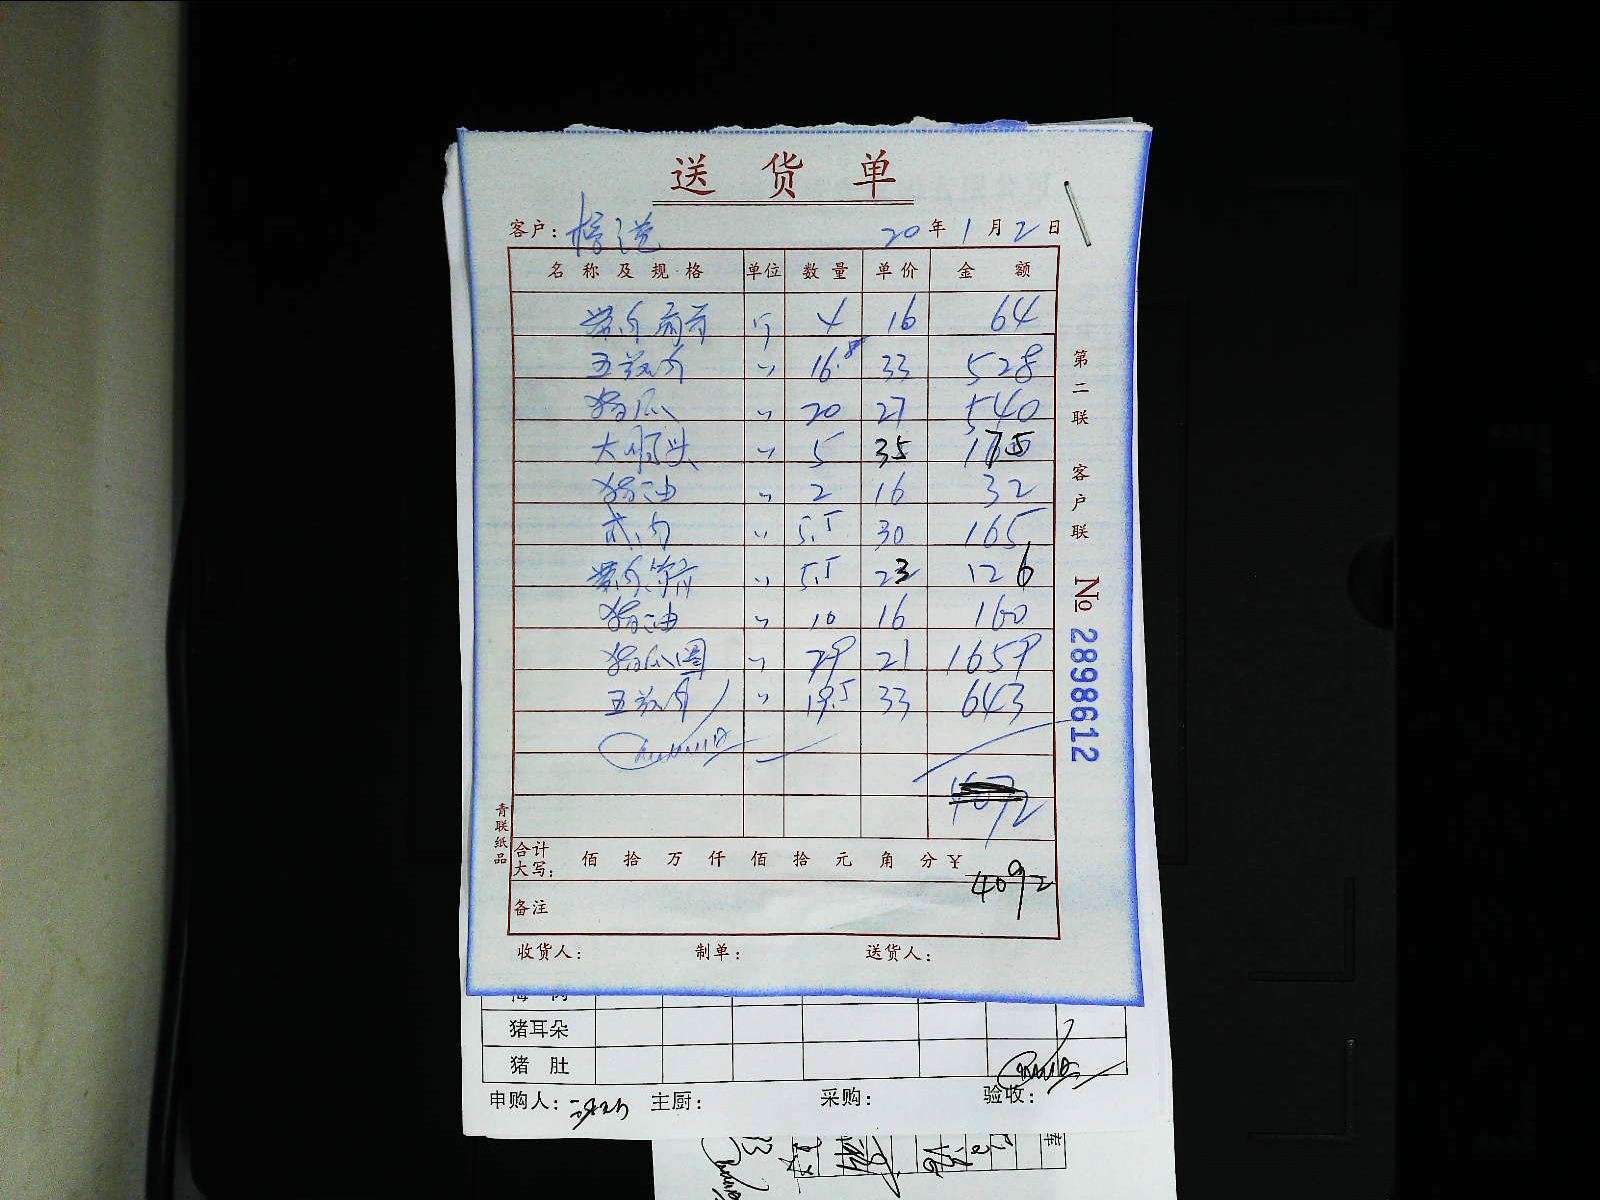 送货单
客户: 20年1月2日
名称及规格 单位 数量 单价 金额
斤 4 16 64
五花肉 〃 16. 33 528
猪瓜 〃 20 27 540
大骨头 〃 5 35 175
猪油 〃 2 16 32
〃 5.5 30 165
〃 5.5 23 126
猪油 〃 10 16 160
猪瓜圆 〃 79 21 1659
五花肉 〃 19.5 33 643
4072
合计大写: 佰 拾 万 仟 佰 拾 元 角 分 ¥ 4092
备注
收货人: 制单: 送货人:
第二联 客户联 No 2898612
青联纸品
猪耳朵
猪肚
申购人: 主厨: 采购: 验收: